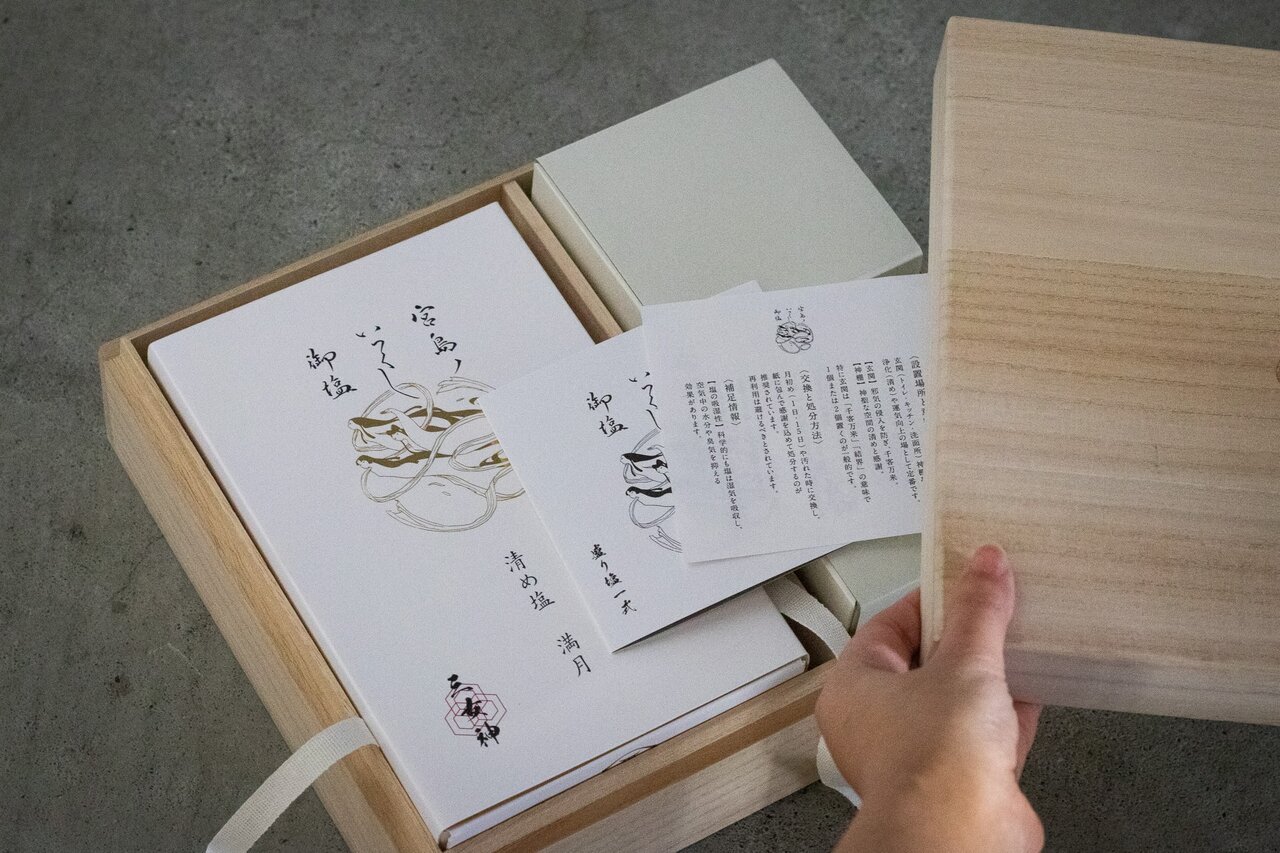 宮島ノ
いつくし
御塩
清め塩　満月
三女神
いつくし
御塩
盛り塩一式
宮島ノ
いつくし
御塩
（設置場所と
玄関（トイレ・キッチン・洗面所）神棚
浄化（清め）や運気向上の場として定番です。
【玄関】邪気の侵入を防ぎ、千客万来
【神棚】神聖な空間の清めと感謝。
特に玄関は「千客万来」「結界」の意味で
1個または2個置くのが一般的です。
（交換と処分方法）
月初め（1日・15日）や汚れた時に交換し、
紙に包んで感謝を込めて処分するのが
推奨されています。
再利用は避けるべきとされています。
（補足情報）
【塩の吸湿性】科学的にも塩は湿気を吸収し、
空気中の水分や臭気を抑える
効果があります。